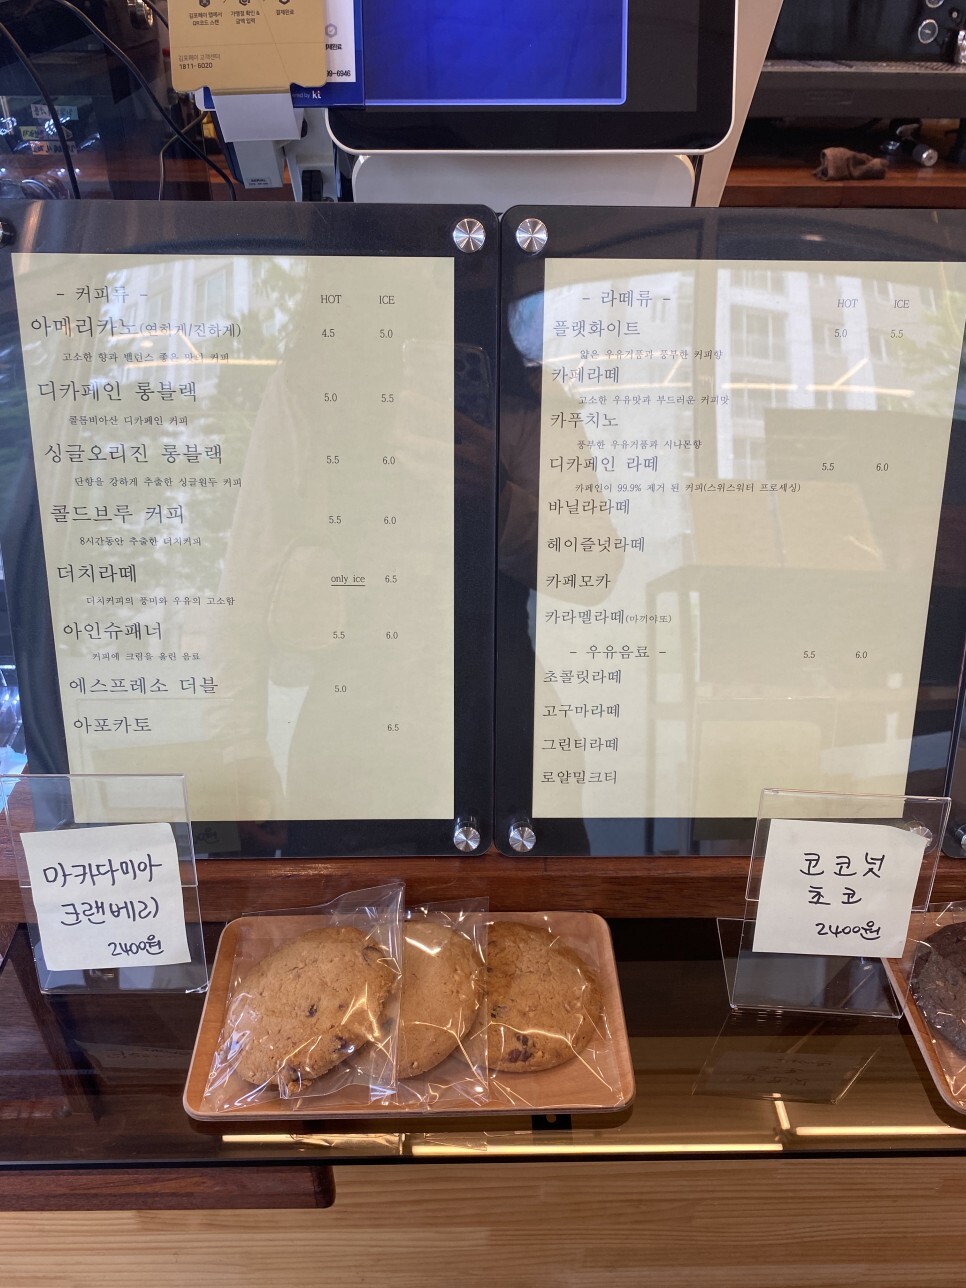 김포페이 앱에서
QR코드 스캔
가맹점 확인 &
금액 입력
결제완료
김포페이 고객센터
1811- 6020
99-6946
kt
- 커피류 -
HOT ICE
아메리카노(연하게/진하게) 4.5 5.0
고소한 향과 밸런스 좋은 맛의 커피
디카페인 롱블랙 5.0 5.5
콜롬비아산 디카페인 커피
싱글오리진 롱블랙 5.5 6.0
단향을 강하게 추출한 싱글원두 커피
콜드브루 커피 5.5 6.0
8시간동안 추출한 더치커피
더치라떼 only ice 6.5
더치커피의 풍미와 우유의 고소함
아인슈패너 5.5 6.0
커피에 크림을 올린 음료
에스프레소 더블 5.0
아포카토 6.5
- 라떼류 -
HOT ICE
플랫화이트 5.0 5.5
얇은 우유거품과 풍부한 커피향
카페라떼
고소한 우유맛과 부드러운 커피맛
카푸치노
풍부한 우유거품과 시나몬향
디카페인 라떼 5.5 6.0
카페인이 99.9% 제거 된 커피(스위스워터 프로세싱)
바닐라라떼
헤이즐넛라떼
카페모카
카라멜라떼(마끼야또)
- 우유음료 - 5.5 6.0
초콜릿라떼
고구마라떼
그린티라떼
로얄밀크티
마카다미아
크랜베리
2400원
코코넛
초코
2400원